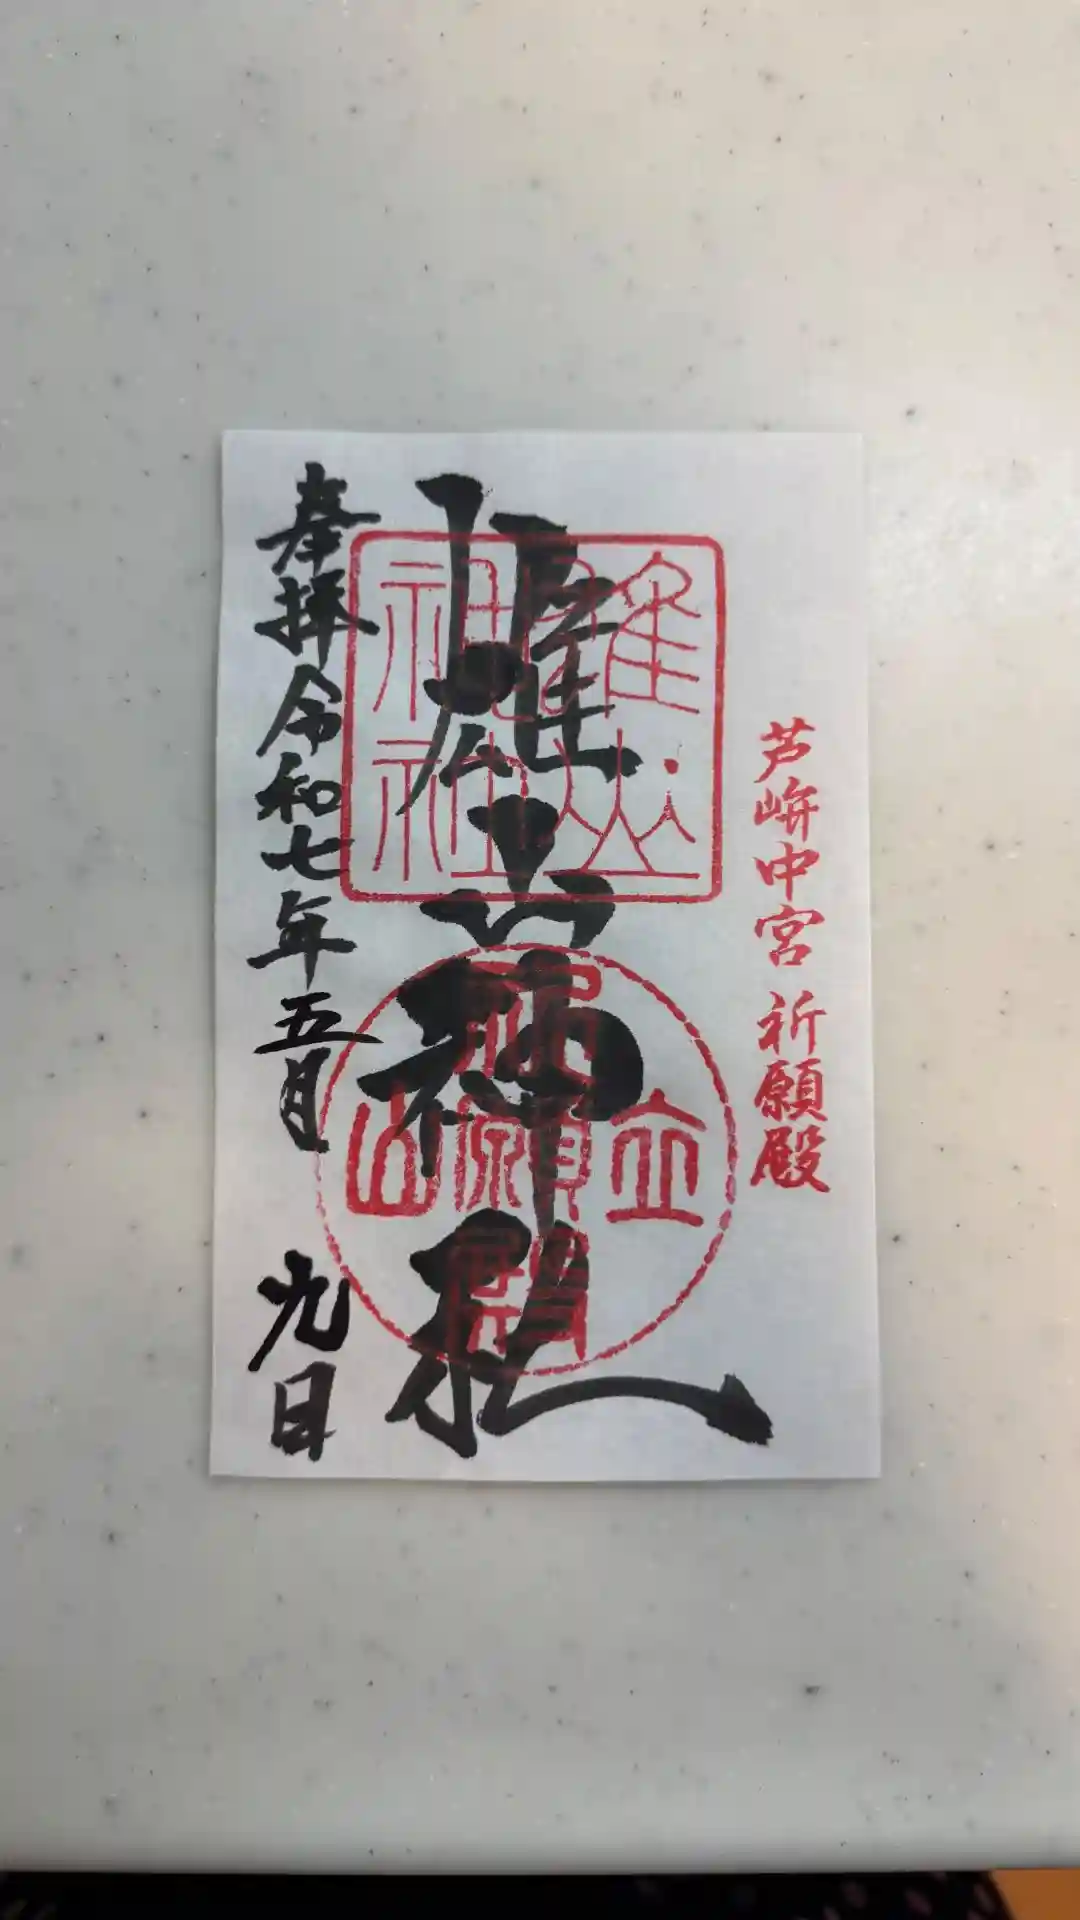 芦峅中宮 祈願殿
雄山神社
雄山神社
立山
祈願殿
奉拝 令和七年五月 九日